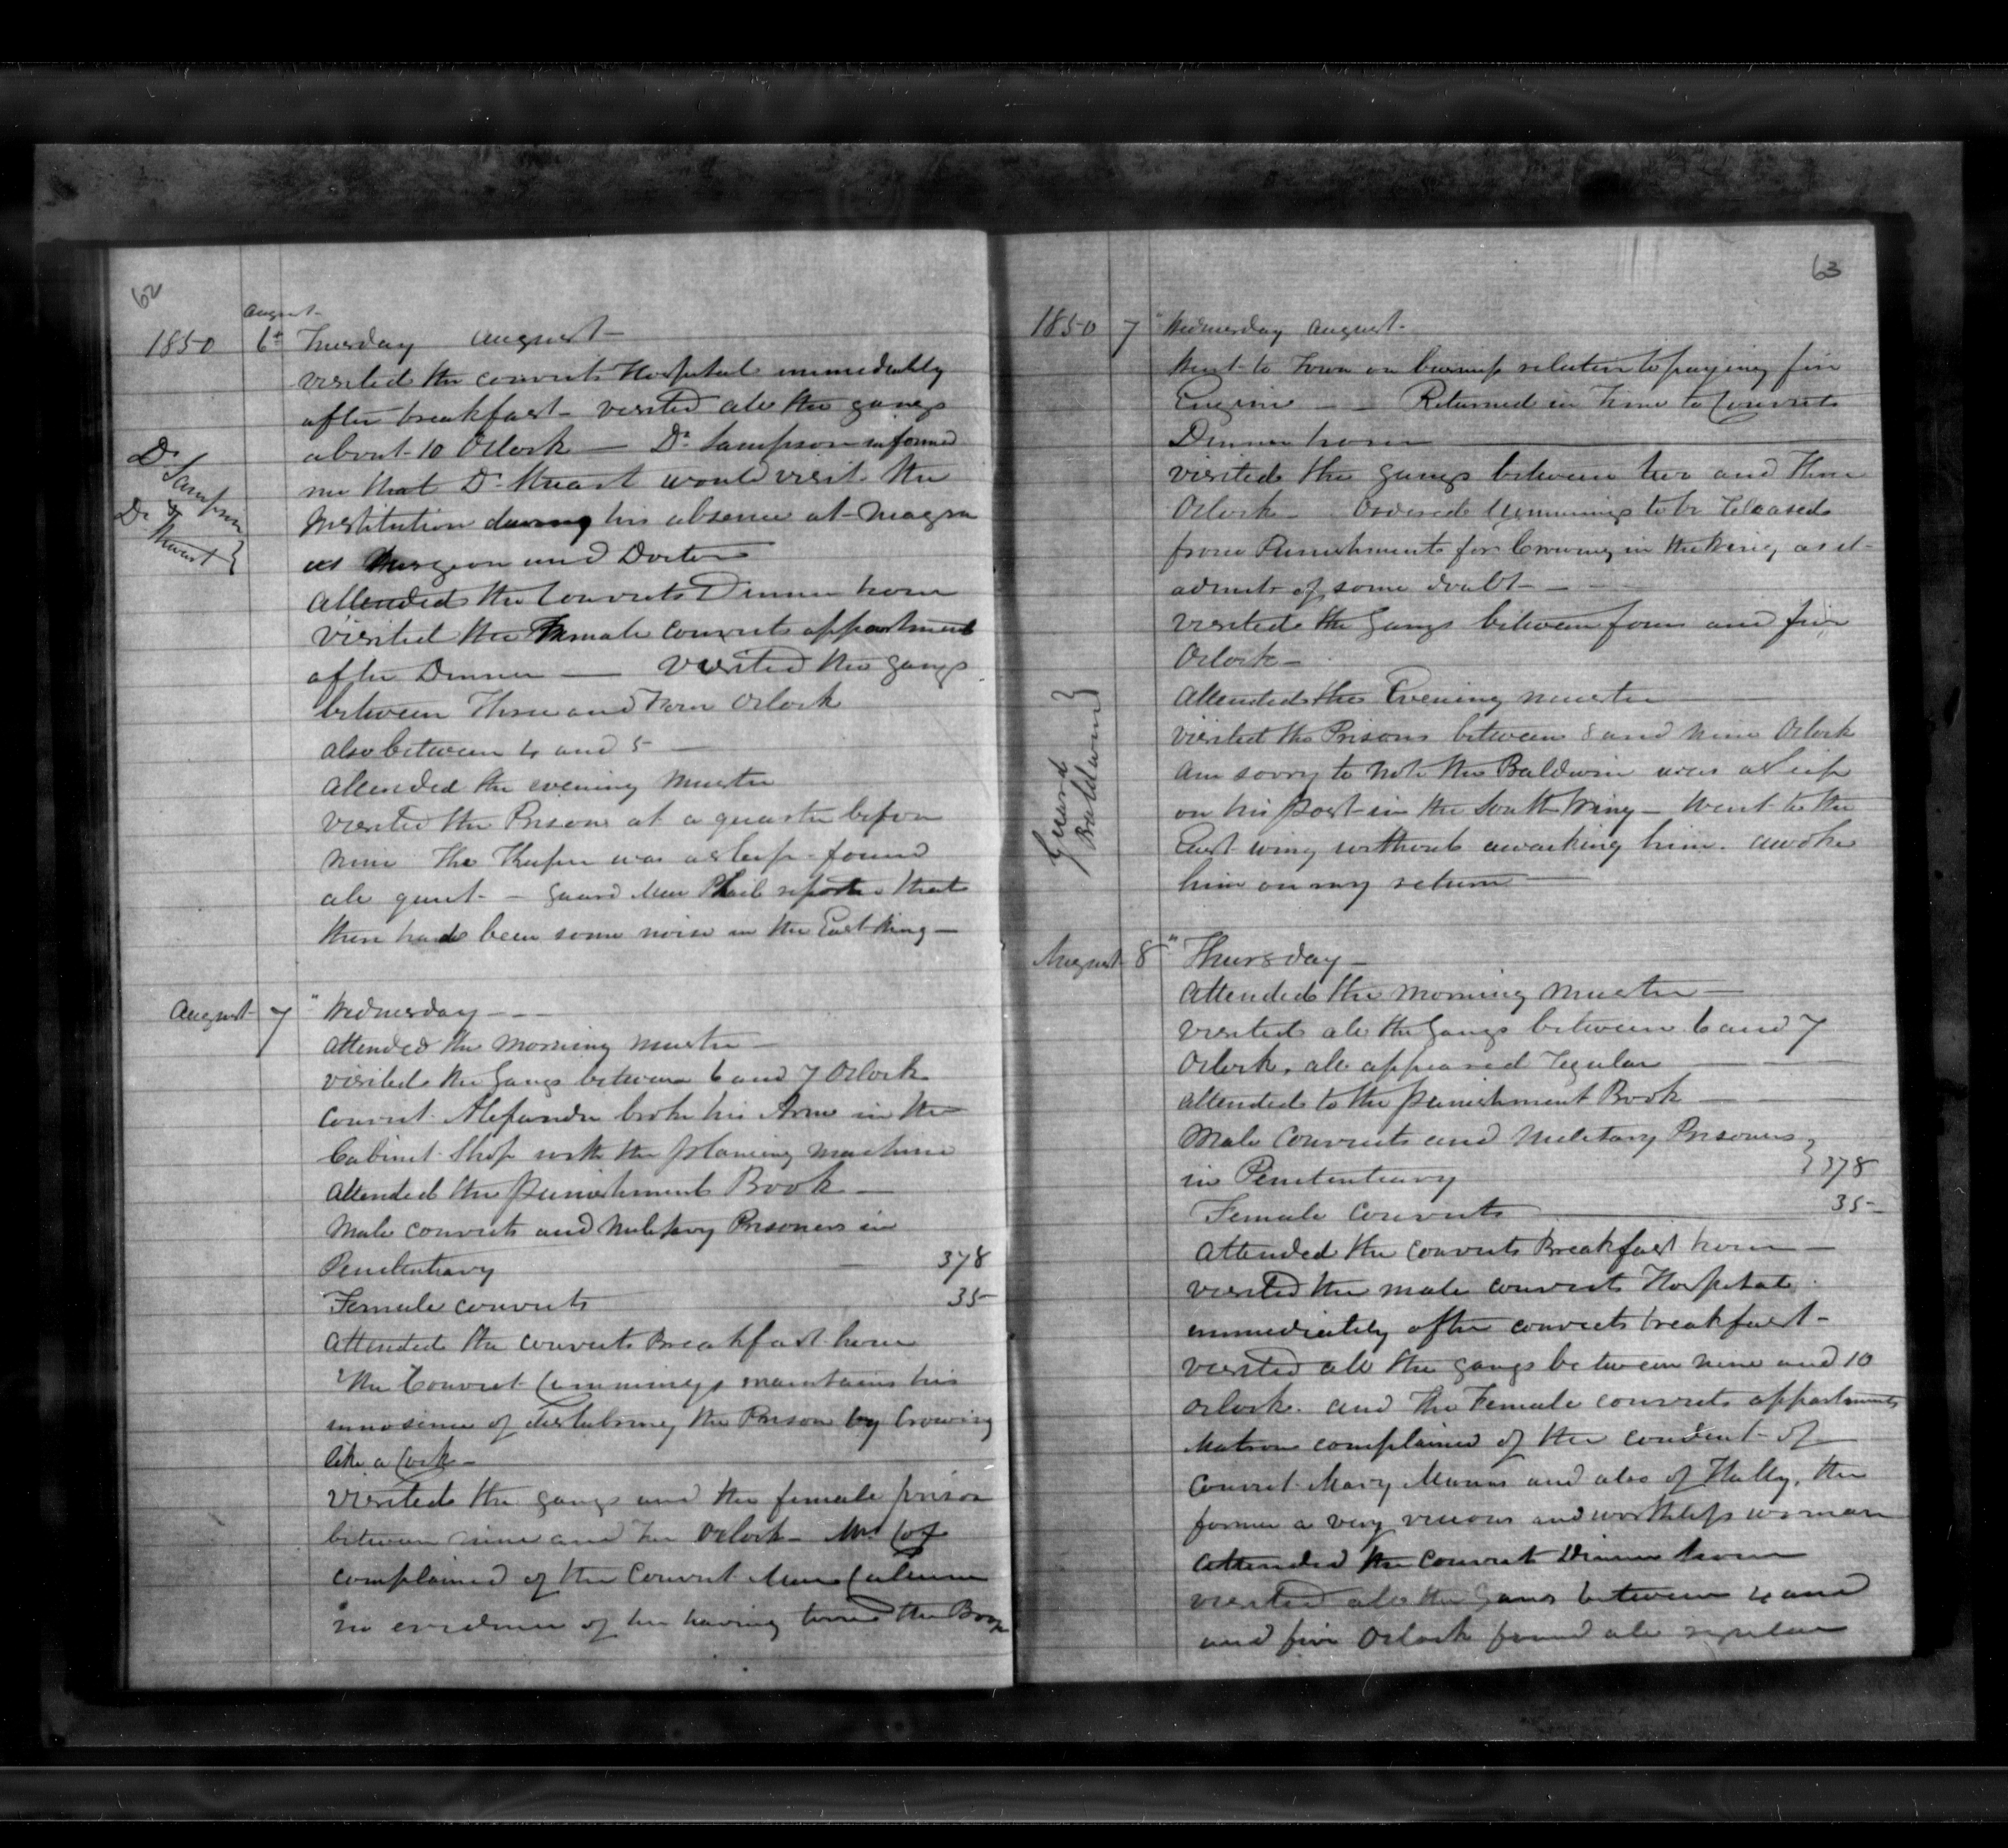 62
August
1850 6th Tuesday August
visited the convicts Hospital immediately
after breakfast - visited all the gangs
about 10 Oclock — Dr Sampson informed
me that Dr Stuart would visit the
Institution during his absence at Niagra
as Surgeon and Doctor
Dr Sampson
&
Dr Stewart
attended the Convicts Dinner hour
visited the Female convicts appartment
after Dinner — visited the gangs
between Three and Four Oclock
also between 4 and 5 —
attended the evening muster
visited the Prisons at a quarter before
nine The Keeper was asleep - found
all quiet - guard Mac Phail reports that
there had been some noise in the East Wing —
August 7 " Wednesday - - -
attended the morning muster —
visited the Gangs between 6 and 7 Oclock
convict Alexandre broke his Arm in the
Cabinet Shop with the planing machine
attended the punishment Book —
Male convicts and Military Prisoners in
Penitentiary — 378
Female convicts 35
attended the convicts Breakfast hour
The Convict Cummings maintains his
innosence of disturbing the Prison by Crowing
like a Cock —
visited the gangs and the female prison
between nine and Ten Oclock - Mrs Cox
complained of the Convict
no evidence of her having torne the Book
63
1850 7 " Wednesday August -
Went to Town on business relative to paying fire
Engine - - Returned in Time to Convicts
Dinner hour
visited the gangs between two and Three
Oclock - Ordered Cummings to be Released
from Punishment for Crowing in the Wing, as it
admits of some doubt - - -
visited the Gangs between four and five
Oclock -
attended the Evening muster
visited the Prisons between 8 and nine Oclock
Guard
Baldwin
am sorry to note the Baldwin was asleep
on his post in the South Wing - Went to the
East wing without awaking him. awoke
him on my return —
August 8 " Thursday -
attended the morning muster —
visited all the Gangs between 6 and 7
Oclock, all appeared regular —
attended to the punishment Book —
Male Convicts and Military Prisoners
in Penitentiary } 378
Female Convicts — 35
attended the convicts Breakfast hour —
visited the male convicts Hospital
immediately after convicts breakfast -
visited all the gangs between nine and 10
oclock. and The Female convicts appartments
Matron complained of the conduct of
Convict Mary Munn and also of Hally, the
former a very vicious and worthless woman
attended the convict Dinner hour
visited all the Gangs between 4 and
and five Oclock found all regular